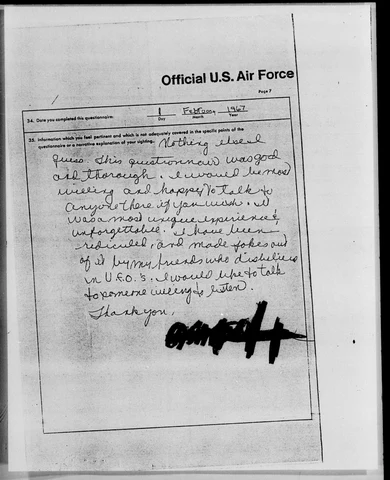 Official U.S. Air Force
Page 7
34. Date you completed this questionnaire: 1 February 1967
Day Month Year
35. Information which you feel pertinent and which is not adequately covered in the specific points of the
questionnaire or a narrative explanation of your sighting. Nothing else I
guess. This questionnair was good
and thorough. I would be most
willing and happy to talk to
anyone there if you wish. It
was a most unique experience &
unforgettable. I have been
ridiculed, and made jokes out
of it by my friends who disbelieve
in U.F.O.'s. I would like to talk
to someone willing to listen.
Thank you,